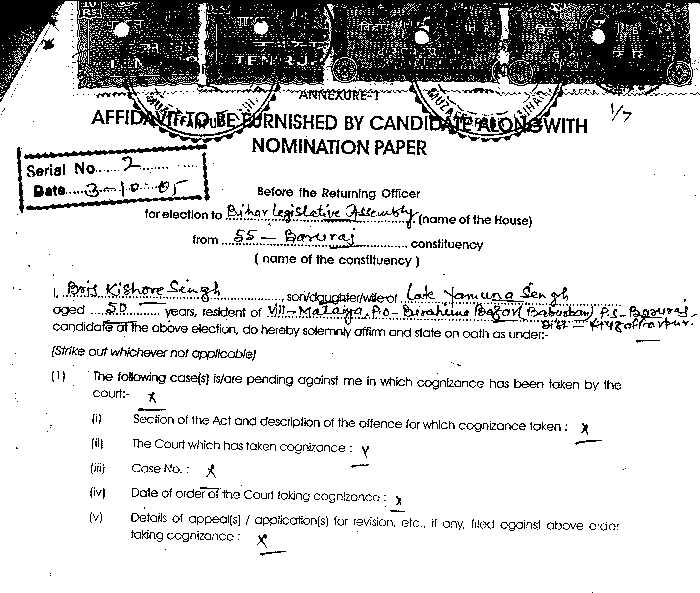 TEN R
ANNEXURE-1
1/7
AFFIDAVIT TO BE FURNISHED BY CANDIDATE ALONGWITH
NOMINATION PAPER
Serial No. 2
Date 3-10-05
Before the Returning Officer
for election to Bihar Legislative Assembly (name of the House)
from 55 - Baruraj constituency
( name of the constituency )
I, Brij Kishore Singh son/daughter/wife of Late Yamuna Singh
aged 50 years, resident of Vill- P.O- P.S- Baruraj
Dist -
candidate of the above election, do hereby solemnly affirm and state on oath as under:-
(Strike out whichever not applicable)
(1) The following case(s) is/are pending against me in which cognizance has been taken by the
court:- x
(i) Section of the Act and description of the offence for which cognizance taken : x
(ii) The Court which has taken cognizance : x
(iii) Case No. : x
(iv) Date of order of the Court taking cognizance : x
(v) Details of appeal(s) / application(s) for revision, etc., if any, filed against above order
taking cognizance : x